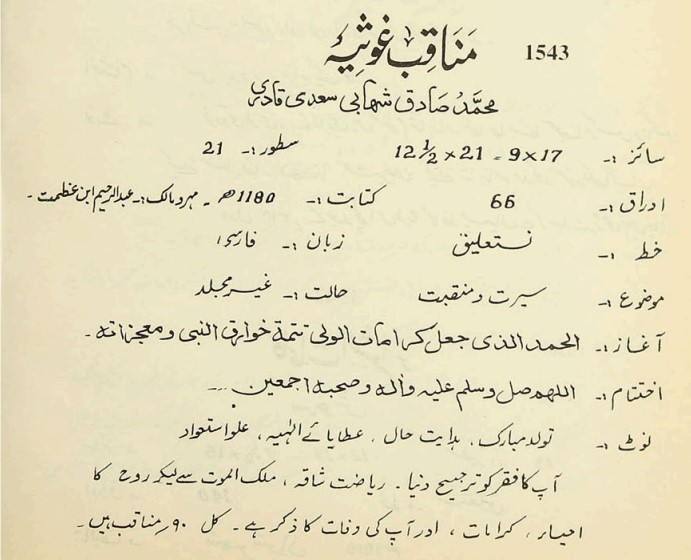 1543 مَنَاقِب غوثیہ
محمّد صَادق شہابی سعدی قادری
سائز :۔ 12½ × 21 ۔ 9 × 17 سطور :۔ 21
اوراق :۔ 66 کتابت :۔ 1180ھ ۔ مہر و مالک :۔ عبدالرحیم ابن عظمت ۔
خط :۔ نستعلیق زبان :۔ فارسی
موضوع :۔ سیرت و منقبت حالت :۔ غیر مجلد
آغاز :۔ الحمد الذی جعل کرامات الولی تتمة خوارق النبی و معجزاتہ ۔
اختتام :۔ اللھم صل وسلم علیہ والہ وصحبہ اجمعین ۔۔۔
نوٹ :۔ تولد مبارک ، ہدایت حال ، عطایائے الٰہیہ ، علو استعواد
آپ کا فقر کو ترجیح دنیا ۔ ریاضت شاقہ ، ملک الموت سے لیکر روح کا
احیار ، کرامات ، اور آپ کی وفات کا ذکر ہے ۔ کل ۹۰ مناقب ہیں ۔